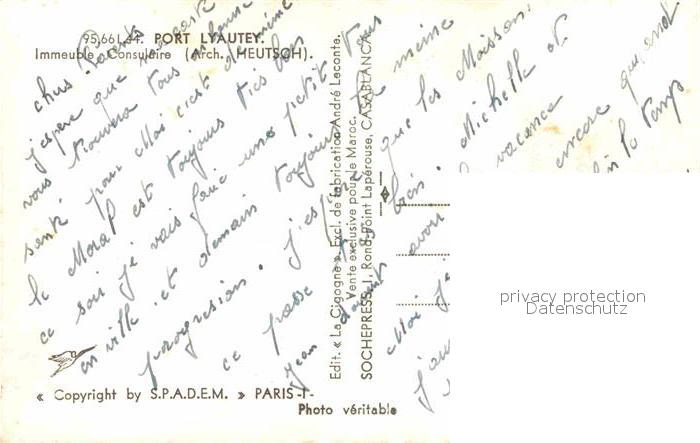 95.661.44. PORT LYAUTEY.
Immeuble Consulaire (Arch. HEUTSCH).
chers Parents
j'espère que ma carte
vous trouvera tous en bonne
santé pour Moi c'est de même
le Moral est toujours très bon
ce soir je vais faire une petit tour
en ville et demain toujours la même
progression. j'espère que les Moissons
ce passe très bien. Michelle et
Jean doivent avoir vacance
Moi encore
le temps
Edit. « La Cigogne ». Excl. de fabrication André Leconte.
Vente exclusive pour le Maroc.
SOCHEPRESS, 1, Rond-Point Lapérouse, CASABLANCA
« Copyright by S.P.A.D.E.M. » PARIS -I-
Photo véritable
privacy protection
Datenschutz